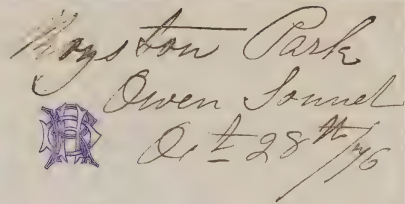 Royston Park
Owen Sound
Oct 28th/76